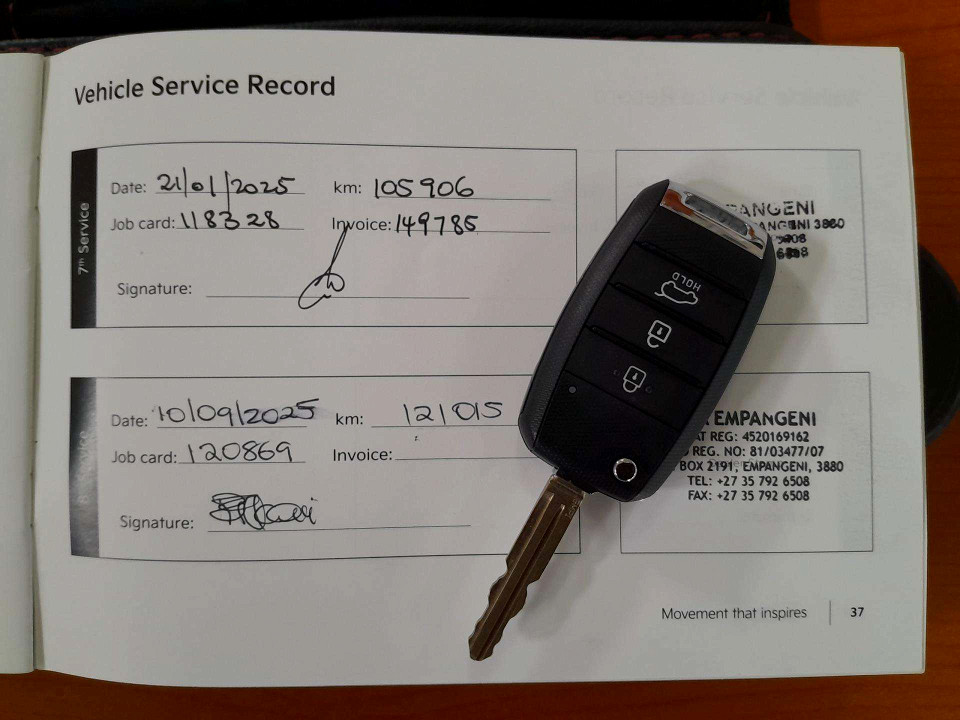 Vehicle Service Record
7th Service
Date: 21/01/2025 km: 105906
Job card: 118328 Invoice: 149785
Signature:
PANGENI
ANGENI 3880
HOLD
Date: 10/09/2025 km: 121015
Job card: 120869 Invoice:
Signature:
EMPANGENI
AT REG: 4520169162
REG. NO: 81/03477/07
BOX 2191, EMPANGENI, 3880
TEL: +27 35 792 6508
FAX: +27 35 792 6508
Movement that inspires 37